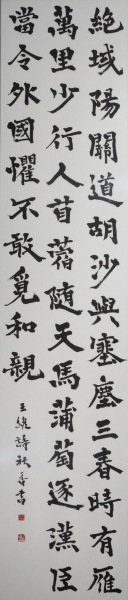 絕域陽關道胡沙與塞塵三春時有雁
萬里少行人苜蓿隨天馬蒲萄逐漢臣
當令外國懼不敢覓和親
王維詩秋香書